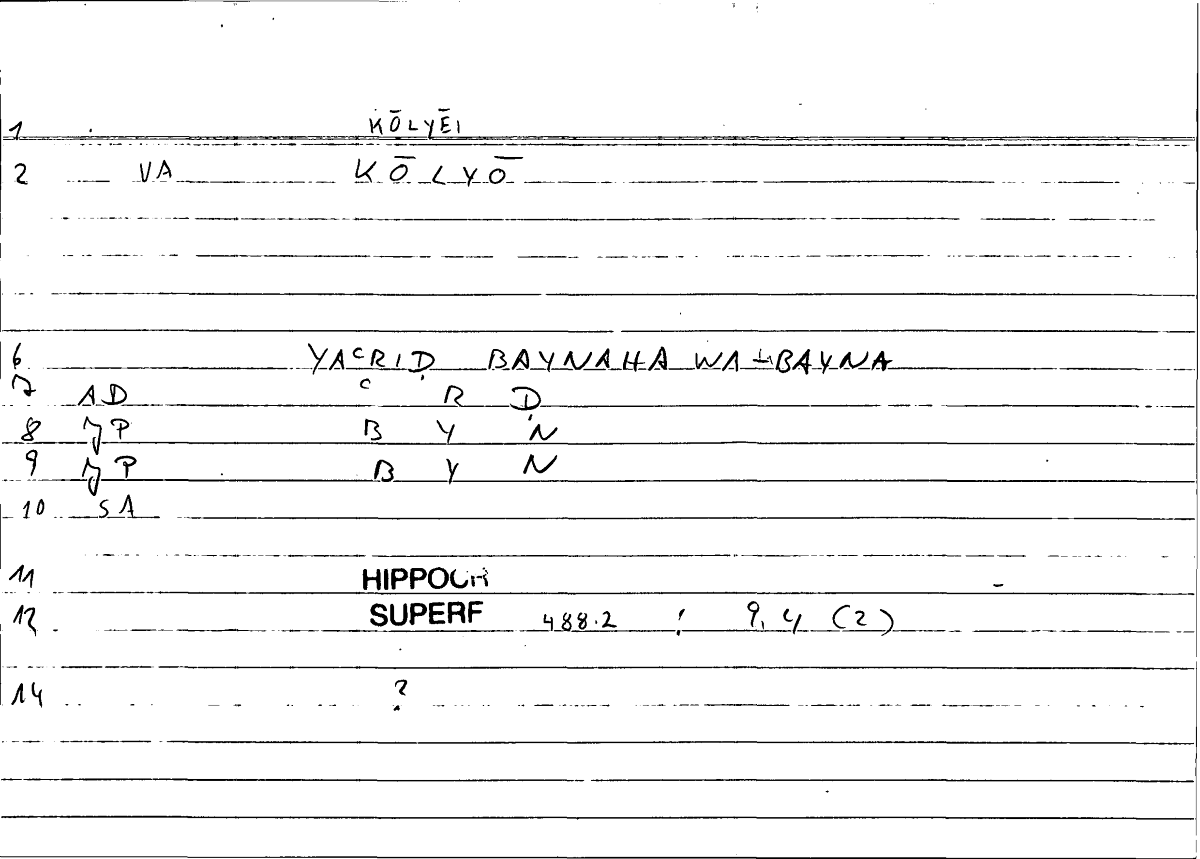 1 KŌLYĒI
2 VA KŌLYŌ
6 YAᶜRIḌ BAYNAHA WA-BAYNA
7 AD ᶜ R Ḍ
8 JP B Y N
9 JP B Y N
10 SA
11 HIPPOCR
12 SUPERF 488.2 ! 9,4 (2)
14 ?